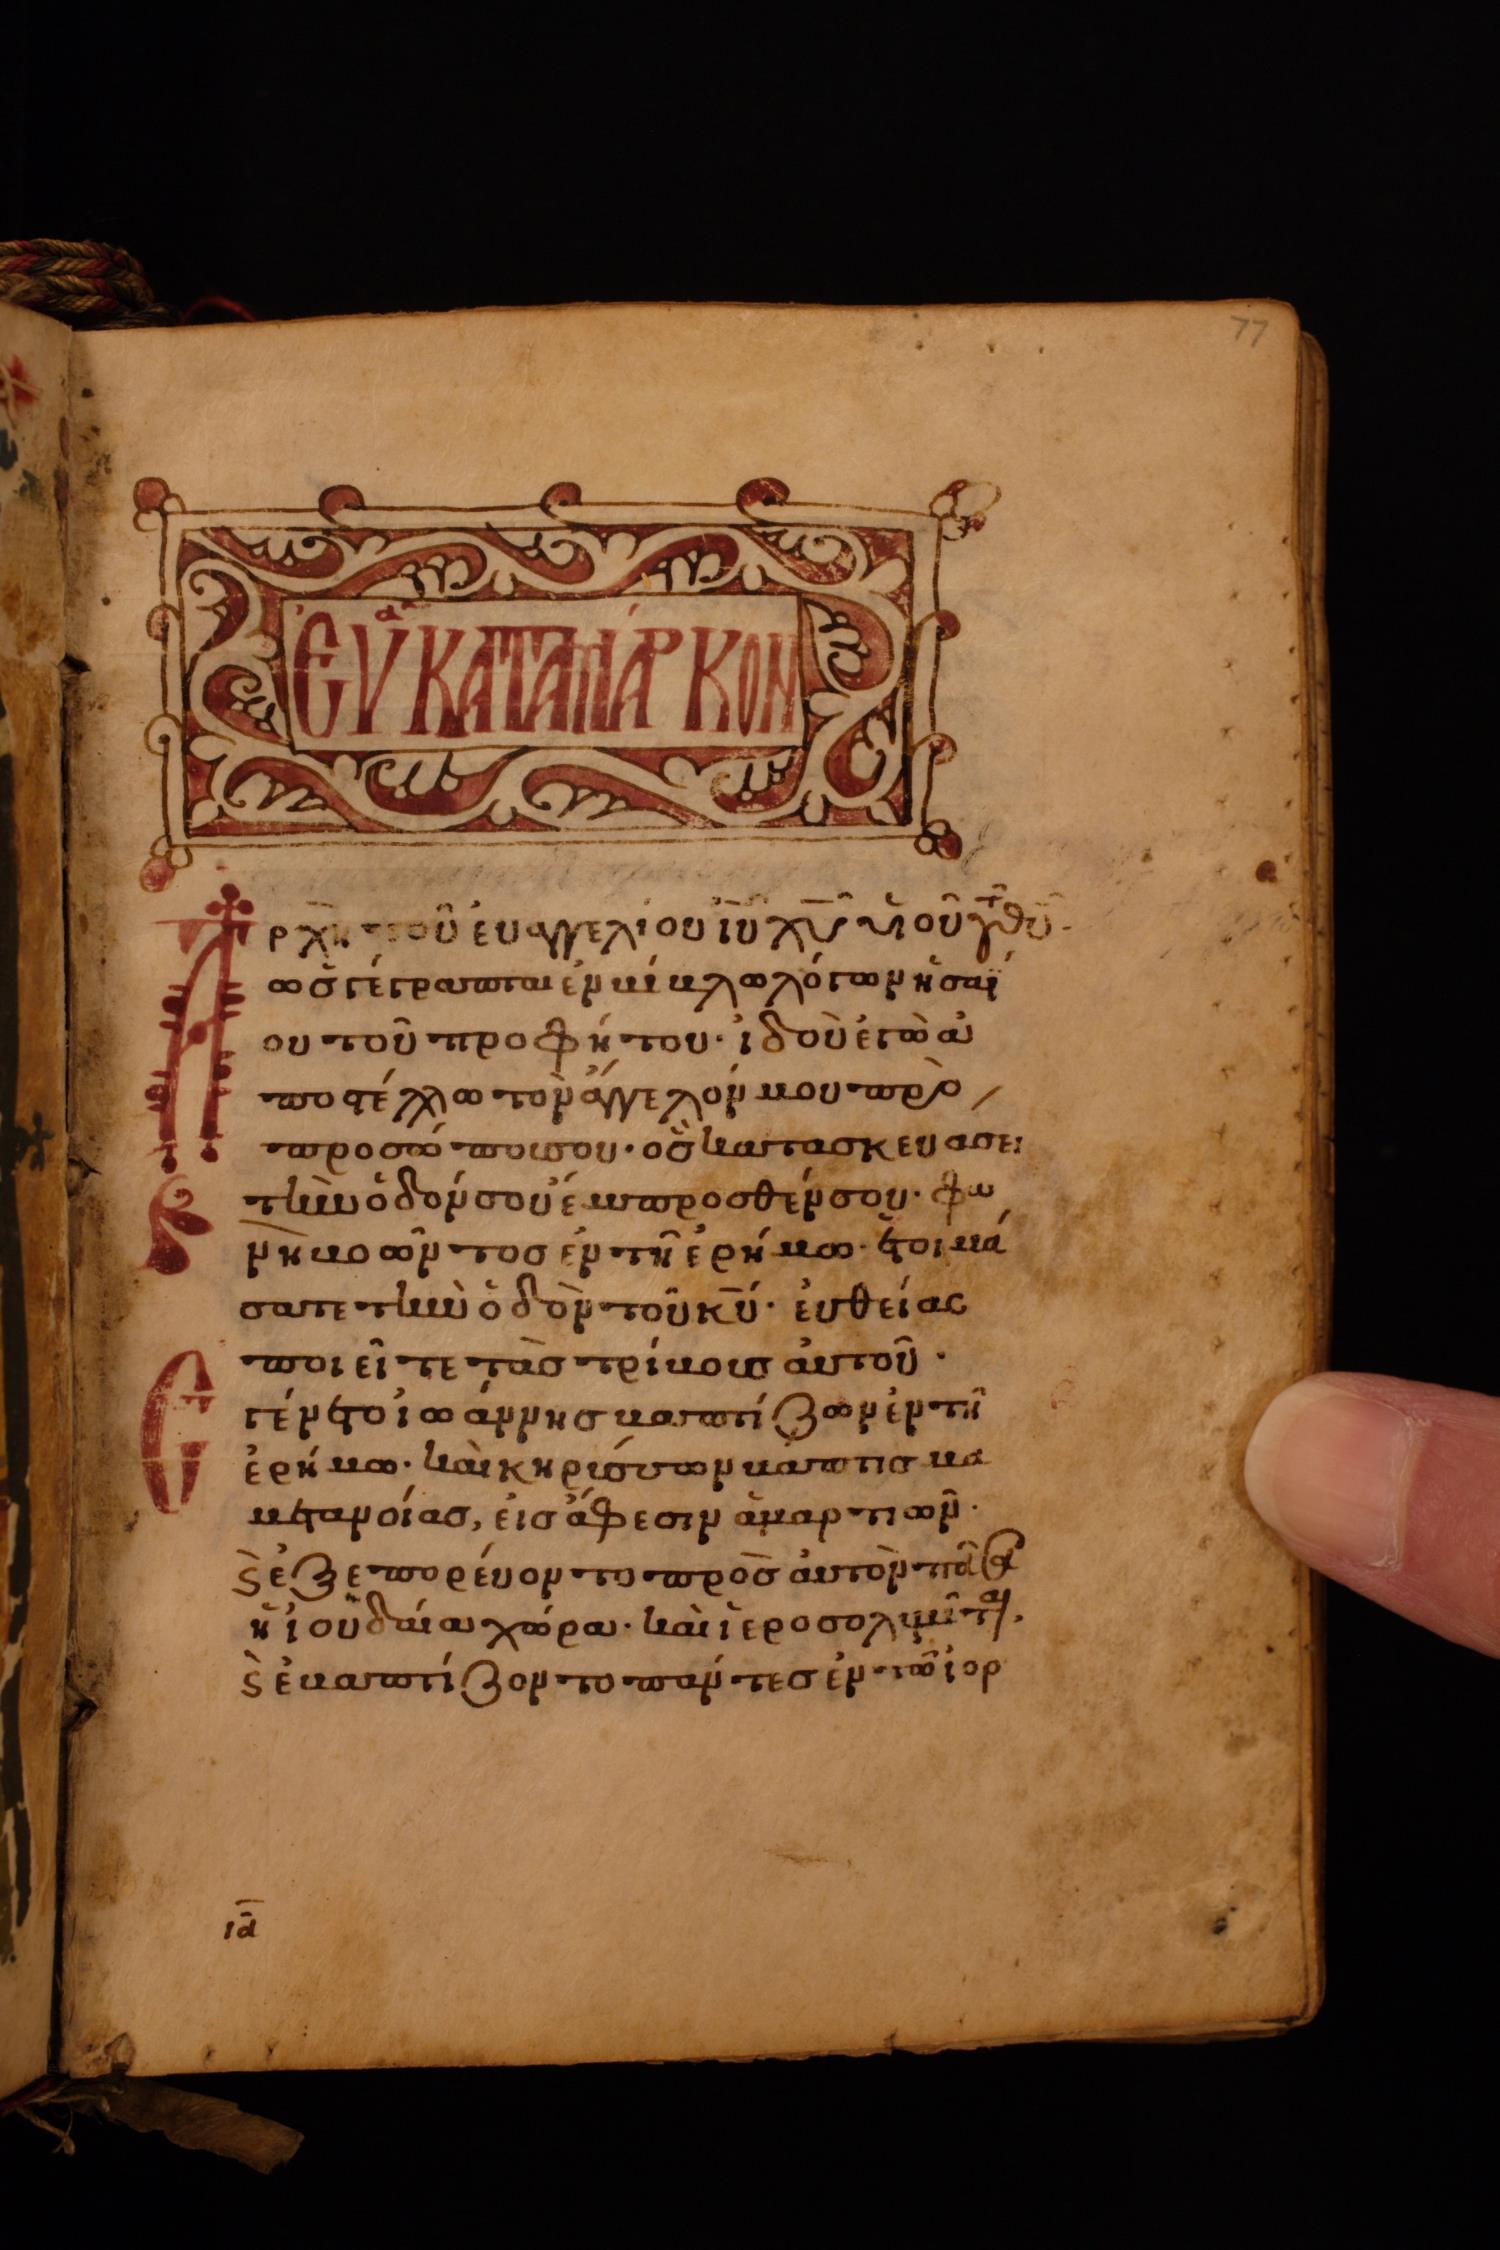 77
ΕΥᾱ ΚΑΤΑ ΜΆΡΚΟΝ
Ἀρχὴ τοῦ ἐυαγγελίου ἰ̅υ̅ χ̅υ̅ ὑιοῦ τοῦ θ̅υ̅·
ὡς γέγραπται ἐν βίβλω λόγων ἠσαΐ
ου τοῦ προφήτου· ἰδοὺ ἐγὼ ἀ
ποστέλλω τὸν ἄγγελόν μου πρὸ
προσώπου σου· ὃς κατασκευάσει
τὴν ὁδόν σου ἔμπροσθέν σου· φω
νὴ βοῶντος ἐν τῆ ἐρήμω· ἑτοιμά
σατε τὴν ὁδὸν τοῦ κ̅υ̅· ἐυθείας
ποιεῖτε τὰς τρίβους ἀυτοῦ·
Ἐγένετο ἰωάννης βαπτίζων ἐν τῆ
ἐρήμω· καὶ κηρύσσων βάπτισμα
μετανοίας, ἐις ἄφεσιν ἁμαρτιῶν·
ϗ ἐξεπορέυοντο πρὸς ἀυτὸν πᾶσα
ἡ ἰουδαία χώρα· καὶ ἱεροσολυμῖται,
ϗ ἐβαπτίζοντο πάντες ἐν τῶ ἰορ
ια̅